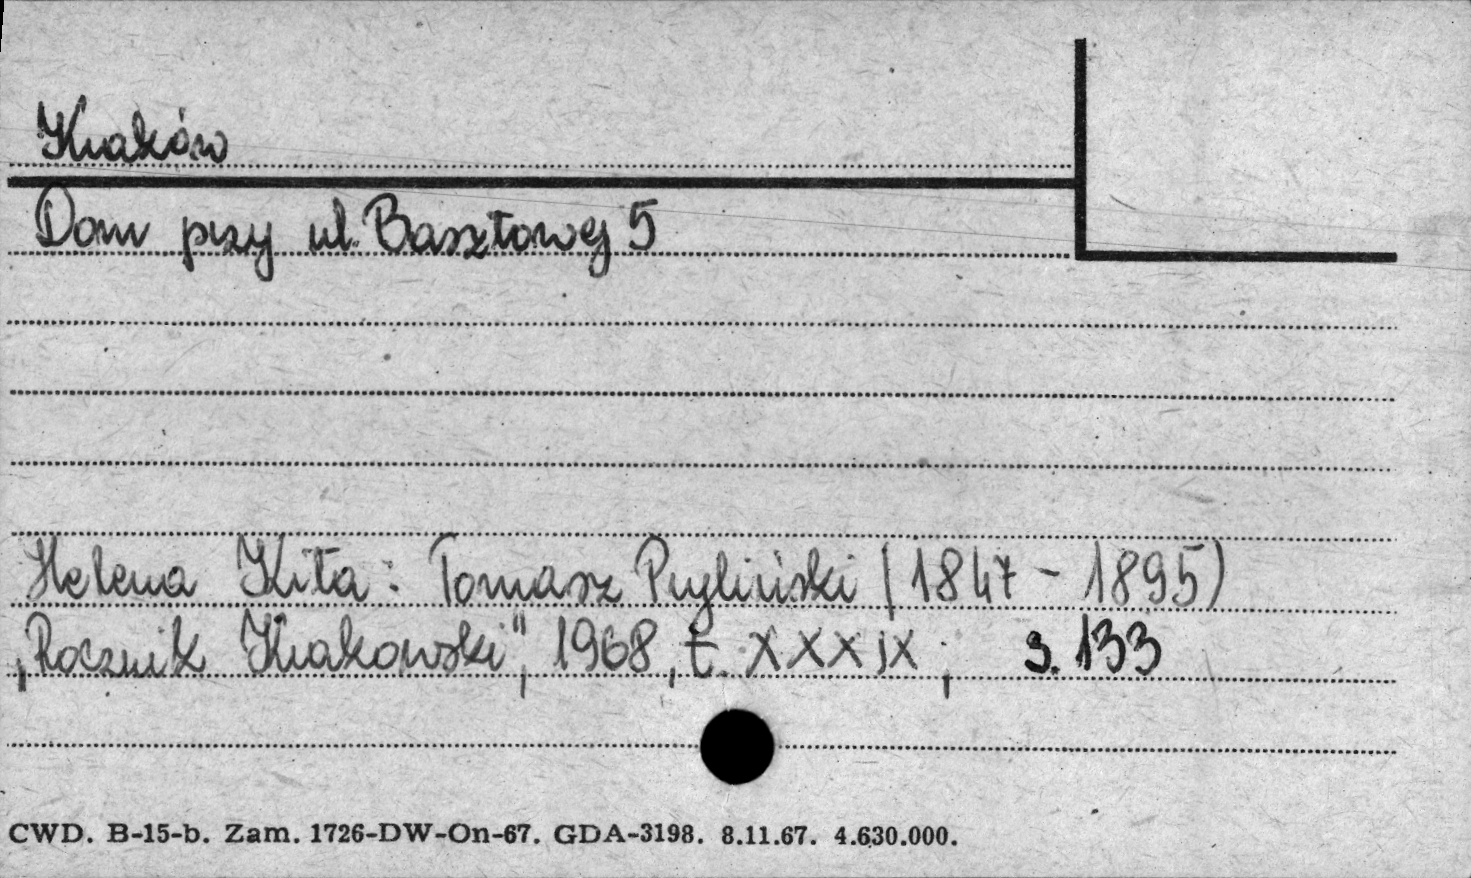 Kraków
Dom przy ul. Basztowej 5
Helena Kita: Tomasz Pryliński (1847 - 1895)
„Rocznik Krakowski", 1968, t. XXXIX; s. 133
CWD. B-15-b. Zam. 1726-DW-On-67. GDA-3198. 8.11.67. 4.630.000.